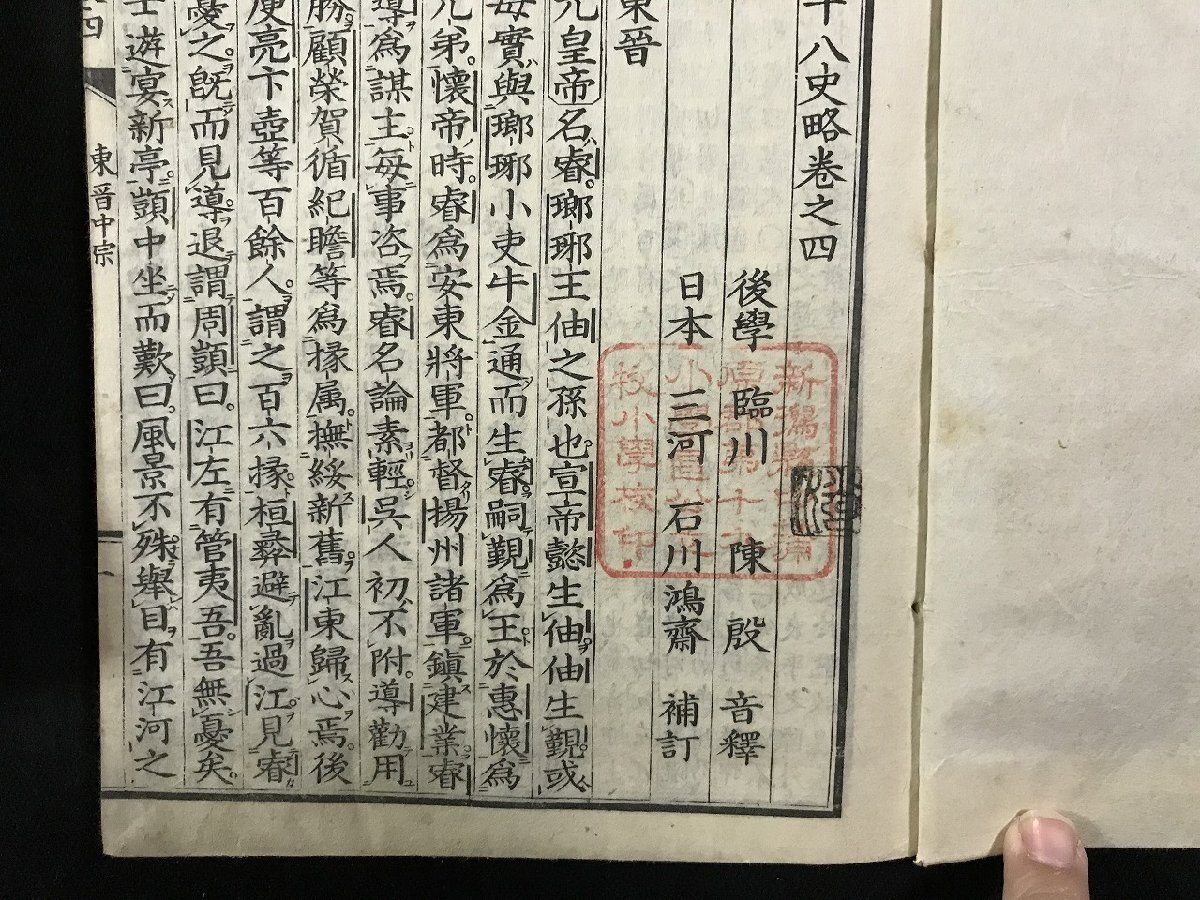 十八史略卷之四
後學 臨川 陳 殷 音釋
日本 三河 石川鴻齋 補訂
東晉
元皇帝名睿瑯琊王伷之孫也宣帝懿生伷伷生覲或
每實與瑯琊小吏牛金通而生睿嗣覲爲王於惠懷爲
兄弟懷帝時睿爲安東將軍都督揚州諸軍鎭建業睿
導爲謀主每事咨焉睿名論素輕吳人初不附導勸用
勝顧榮賀循紀瞻等爲掾属撫綏新舊江東歸心焉後
庾亮卞壺等百餘人謂之百六掾桓彝避亂過江見睿
憂之旣而見導退謂周顗曰江左有管夷吾吾無憂矣
士遊宴新亭顗中坐而歎曰風景不殊舉目有江河之
四
東晉中宗
一